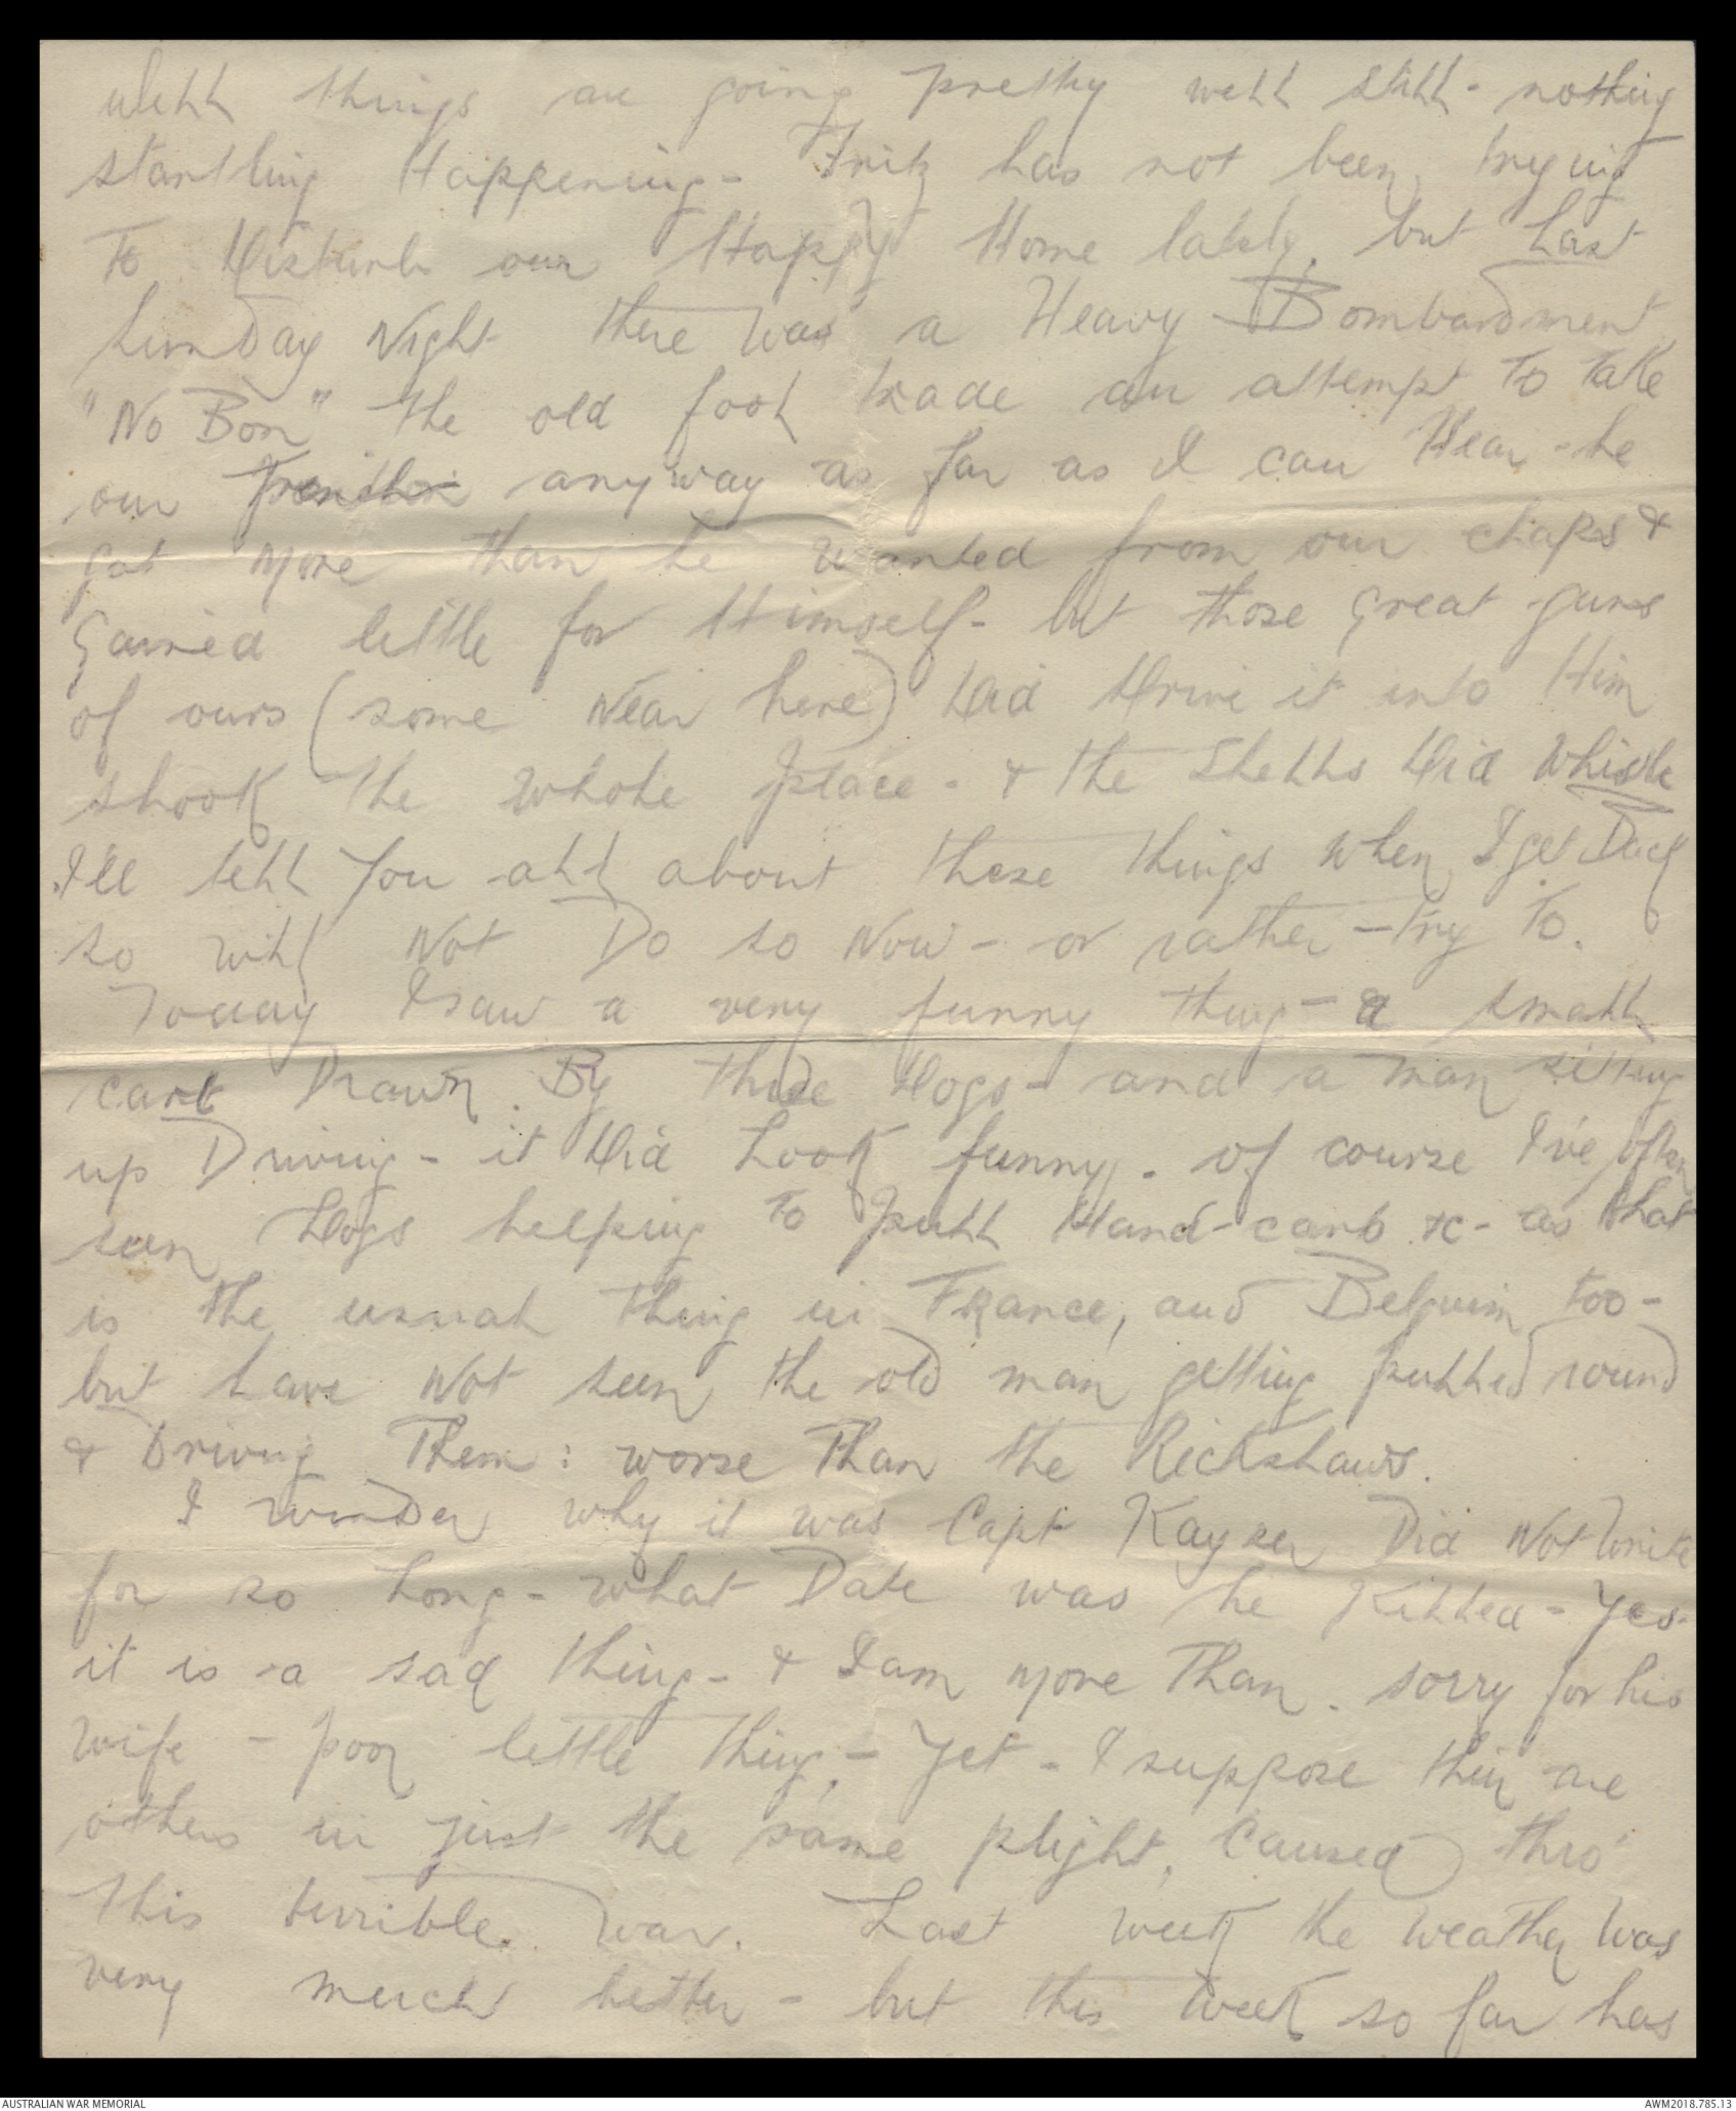 Well things are going pretty well still - nothing
startling Happening - Fritz has not been trying
To Disturb our Happy Home lately, but Last
Sunday Night there was a Heavy Bombardment
"No Bon" the old fool made an attempt To Take
our Trenches anyway as far as I can Hear - he
got More than he wanted from our chaps &
Gained little for Himself - but those great guns
of ours (some Near here) Did Drive it into Him
shook the whole place - & the Shells Did Whistle
I'll tell You all about these things when I get
so will Not Do so Now - or rather - try To.
Today I saw a very funny thing - a small
cart Drawn By three Dogs - and a man sitting
up Driving - it Did Look funny. of course I've often
seen Dogs helping To pull Hand-carts &c - as that
is the usual thing in FRance, and Belguim too -
but have Not seen the old man getting pulled round
& Driving Them : worse Than the Rickshaws.
I wonder why it was Capt Kayser Did Not Write
for so Long - what Date was he Killed - Yes.
it is a sad thing - & I am More Than sorry for his
wife - poor little thing, - Yet - I suppose their are
others in just the same plight, Caused thro'
this terrible War. Last week the weather Was
very much better - but this week so far has
AUSTRALIAN WAR MEMORIAL
AWM2018.785.13